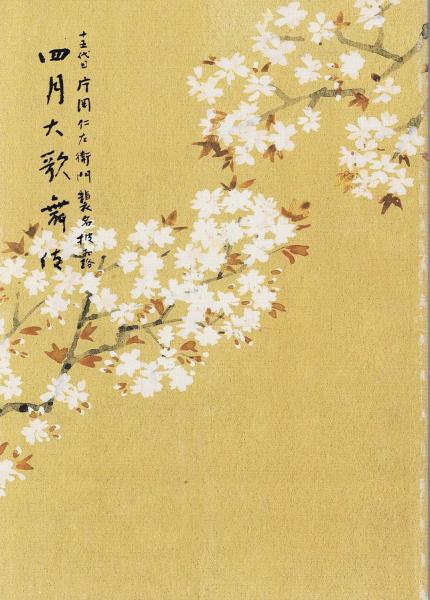 十五代目片岡仁左衛門襲名披露
四月大歌舞伎